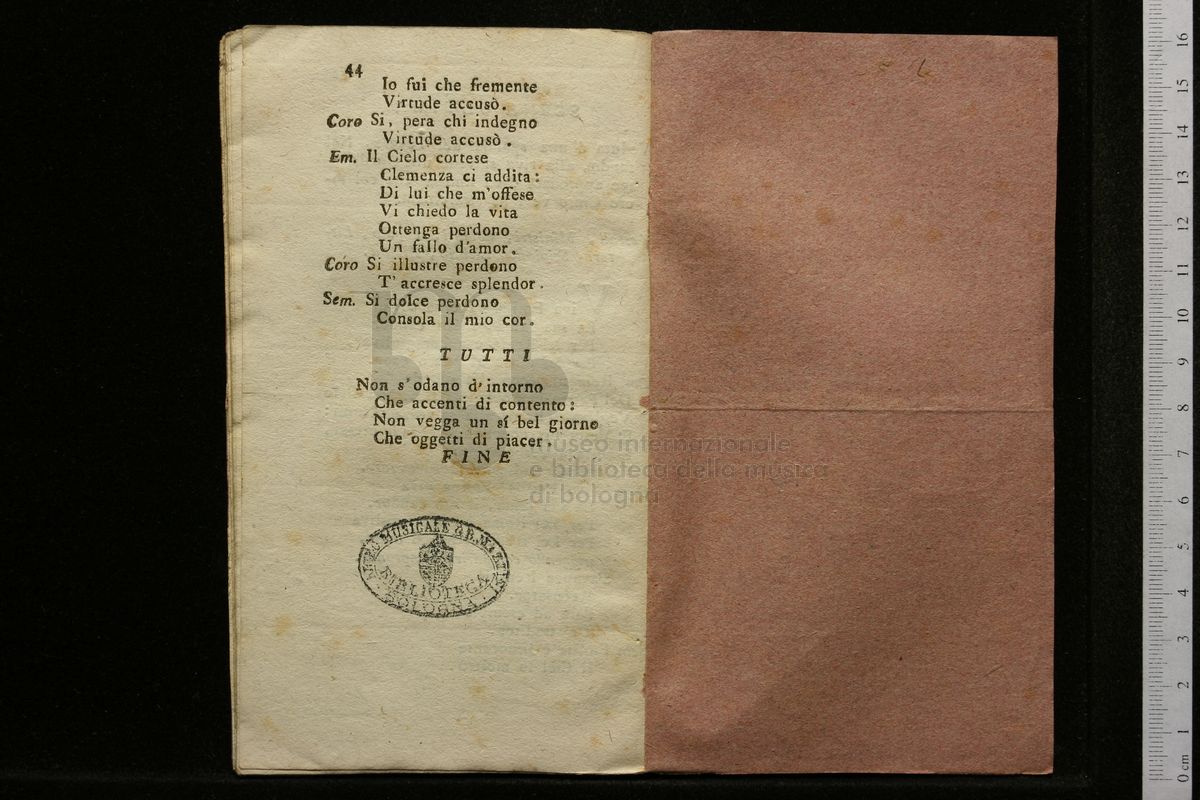 44
Io fui che fremente
Virtude accusò.
Coro Si, pera chi indegno
Virtude accusò.
Em. Il Cielo cortese
Clemenza ci addita:
Di lui che m'offese
Vi chiedo la vita
Ottenga perdono
Un fallo d'amor.
Coro Si illustre perdono
T' accresce splendor.
Sem. Si dolce perdono
Consola il mio cor.
TUTTI
Non s'odano d'intorno
Che accenti di contento:
Non vegga un sí bel giorno
Che oggetti di piacer.
FINE
museo internazionale
e biblioteca della musica
di bologna
MUSICALE G.B. MARTINI
BIBLIOTECA
BOLOGNA
16
15
14
13
12
11
10
9
8
7
6
5
4
3
2
1
0 cm